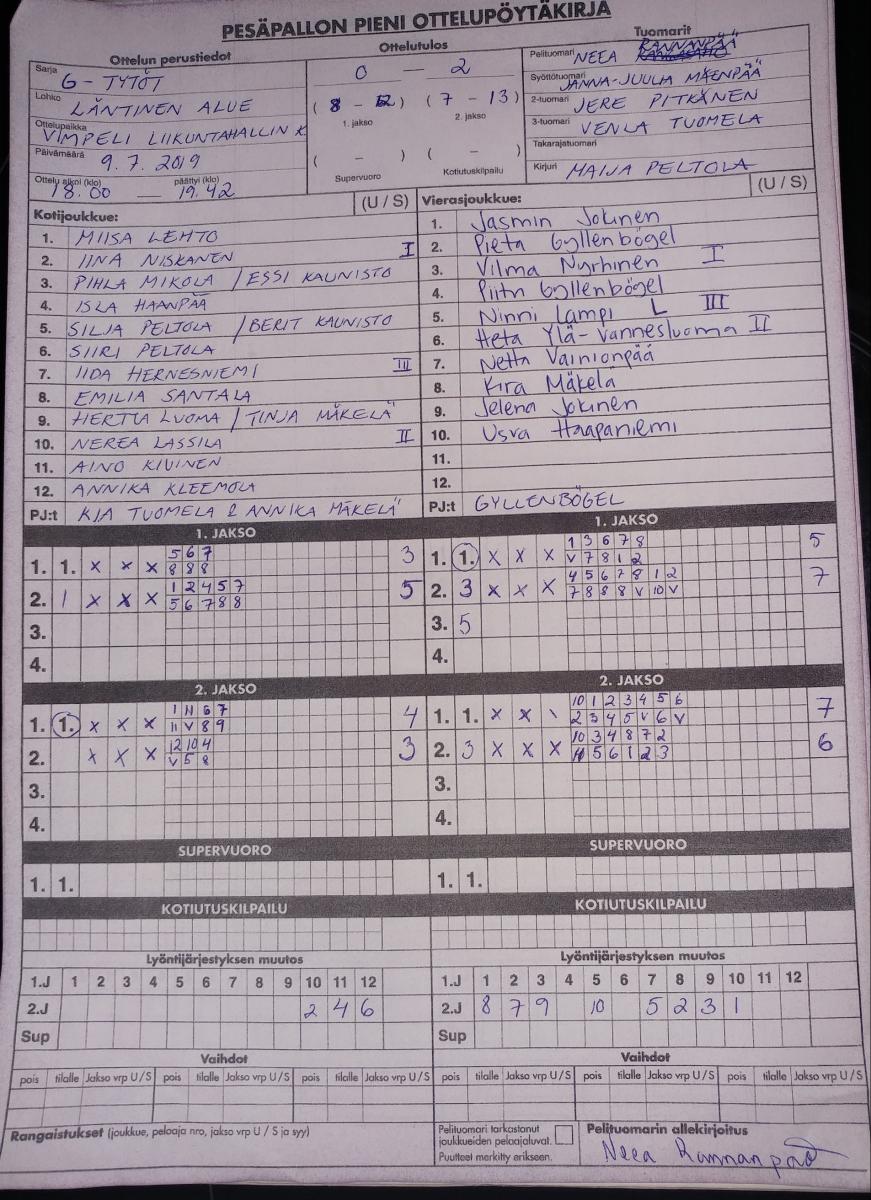 PESÄPALLON PIENI OTTELUPÖYTÄKIRJA
Ottelun perustiedot
Sarja G - TYTÖT
Lohko LÄNTINEN ALUE
Ottelupaikka VIMPELI LIIKUNTAHALLIN K
Päivämäärä 9.7.2019
Ottelu alkoi (klo) 18.00 — päättyi (klo) 19.42
Ottelutulos
0 — 2
(8 - 12) (7 - 13)
1. jakso 2. jakso
( - ) ( - )
Supervuoro Kotiutuskilpailu
Tuomarit
Pelituomari NEEA RANNANPÄÄ
Syöttötuomari JANNA-JUULIA MÄENPÄÄ
2-tuomari JERE PITKÄNEN
3-tuomari VENLA TUOMELA
Takarajatuomari
Kirjuri MAIJA PELTOLA
Kotijoukkue: (U / S)
1. MIISA LEHTO
2. IINA NISKANEN I
3. PIHLA MIKOLA / ESSI KAUNISTO
4. ISLA HAANPÄÄ
5. SILJA PELTOLA / BERIT KAUNISTO
6. SIIRI PELTOLA
7. IIDA HERNESNIEMI III
8. EMILIA SANTALA
9. HERTTA LUOMA / TINJA MÄKELÄ
10. NEREA LASSILA II
11. AINO KIVINEN
12. ANNIKA KLEEMOLA
PJ:t KIA TUOMELA & ANNIKA MÄKELÄ
Vierasjoukkue: (U / S)
1. Jasmin Jokinen
2. Pieta Gyllenbögel
3. Vilma Nyrhinen I
4. Piitu Gyllenbögel
5. Ninni Lampi L III
6. Heta Ylä-Vannesluoma II
7. Netta Vainionpää
8. Kira Mäkelä
9. Jelena Jokinen
10. Usva Haapaniemi
11.
12.
PJ:t GYLLENBÖGEL
1. JAKSO
5 6 7
1. 1. x x x 8 8 8 3
1 2 4 5 7
2. 1 x x x 5 6 7 8 8 5
3.
4.
1. JAKSO
1 3 6 7 8
1. 1. x x x V 7 8 1 2 5
4 5 6 7 8 1 2
2. 3 x x x 7 8 8 8 V 10 V 7
3. 5
4.
2. JAKSO
1 11 6 7
1. 1. x x x 11 V 8 9 4
12 10 4
2. x x x V 5 8 3
3.
4.
2. JAKSO
10 1 2 3 4 5 6
1. 1. x x \ 2 3 4 5 V 6 V 7
10 3 4 8 7 2
2. 3 x x x 5 6 1 2 3 6
3.
4.
SUPERVUORO
1. 1.
SUPERVUORO
1. 1.
KOTIUTUSKILPAILU
KOTIUTUSKILPAILU
Lyöntijärjestyksen muutos
1.J 1 2 3 4 5 6 7 8 9 10 11 12
2.J 2 4 6
Sup
Lyöntijärjestyksen muutos
1.J 1 2 3 4 5 6 7 8 9 10 11 12
2.J 8 7 9 10 5 2 3 1
Sup
Vaihdot
pois tilalle Jakso vrp U / S pois tilalle Jakso vrp U / S pois tilalle Jakso vrp U / S
Vaihdot
pois tilalle Jakso vrp U / S pois tilalle Jakso vrp U / S pois tilalle Jakso vrp U / S
Rangaistukset (joukkue, pelaaja nro, jakso vrp U / S ja syy)
Pelituomari tarkastanut
joukkueiden pelaajaluvat.
Puutteet merkitty erikseen.
Pelituomarin allekirjoitus
Neea Rannanpää